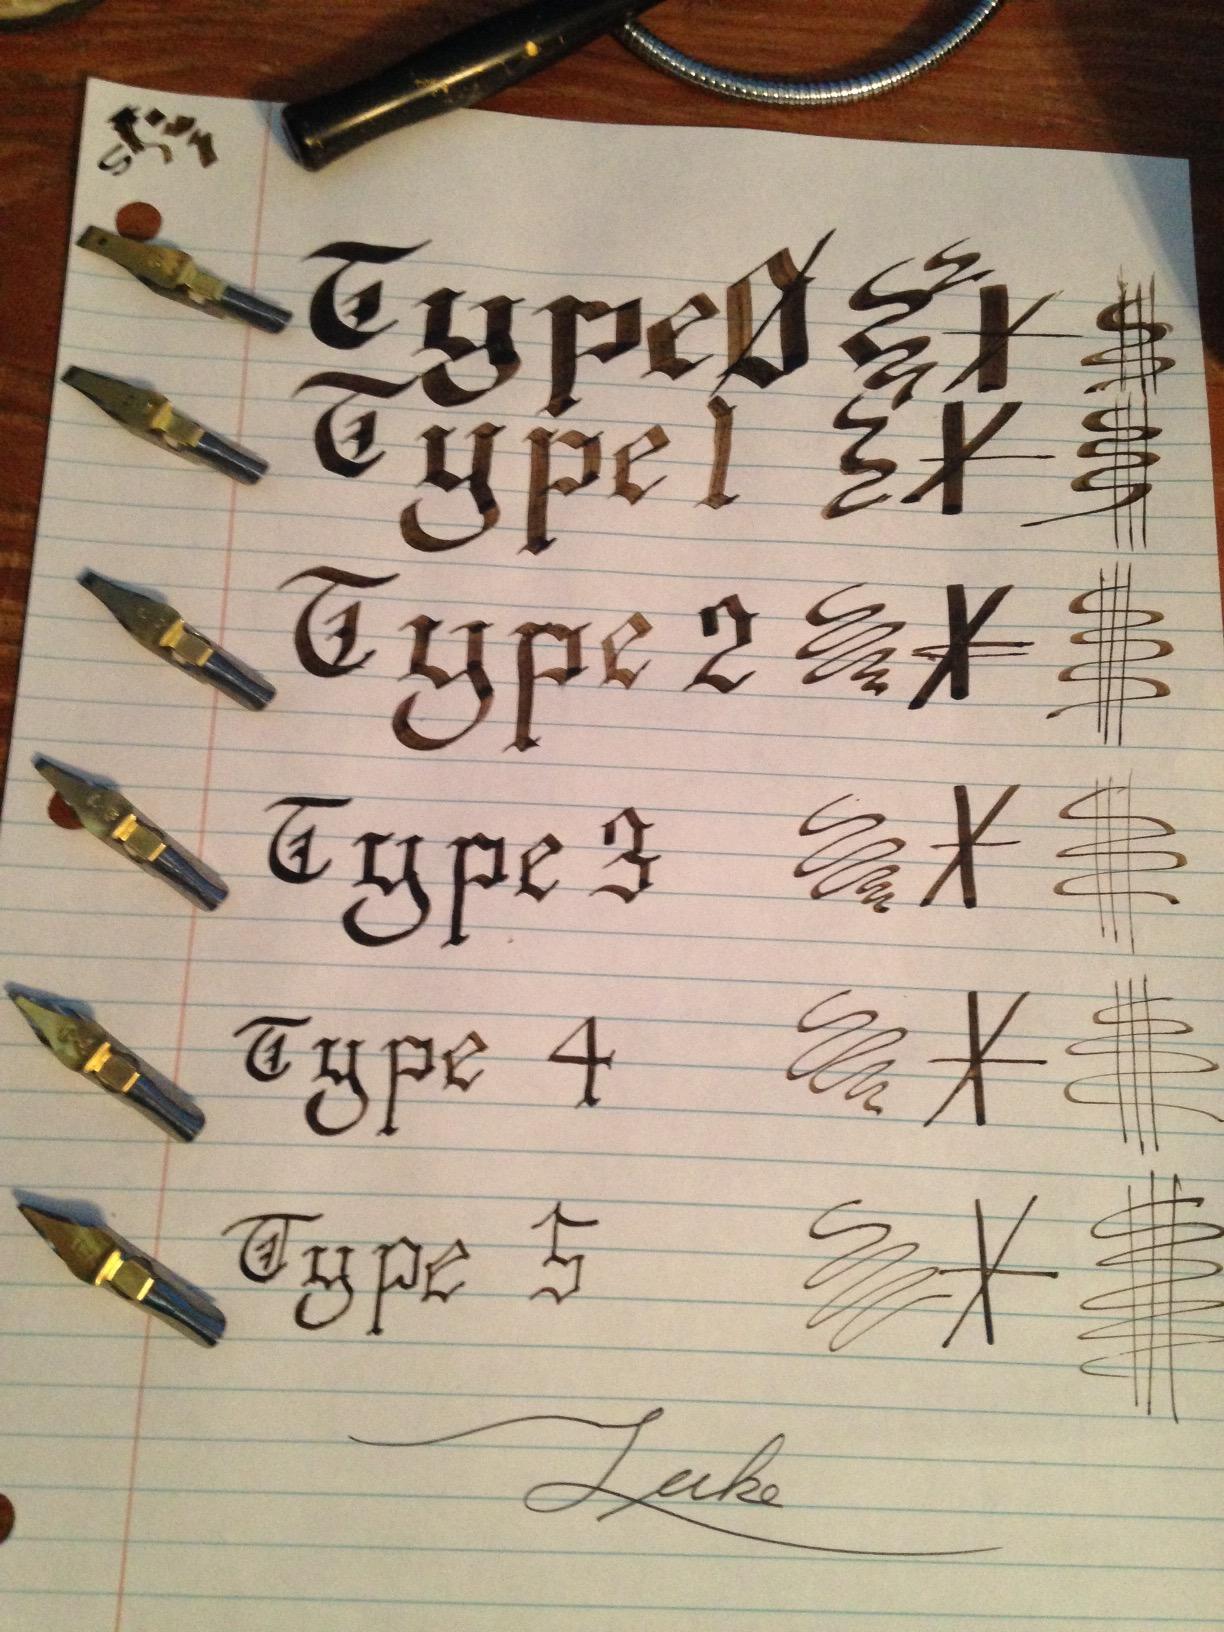 Type Ø
Type 1
Type 2
Type 3
Type 4
Type 5
Luke